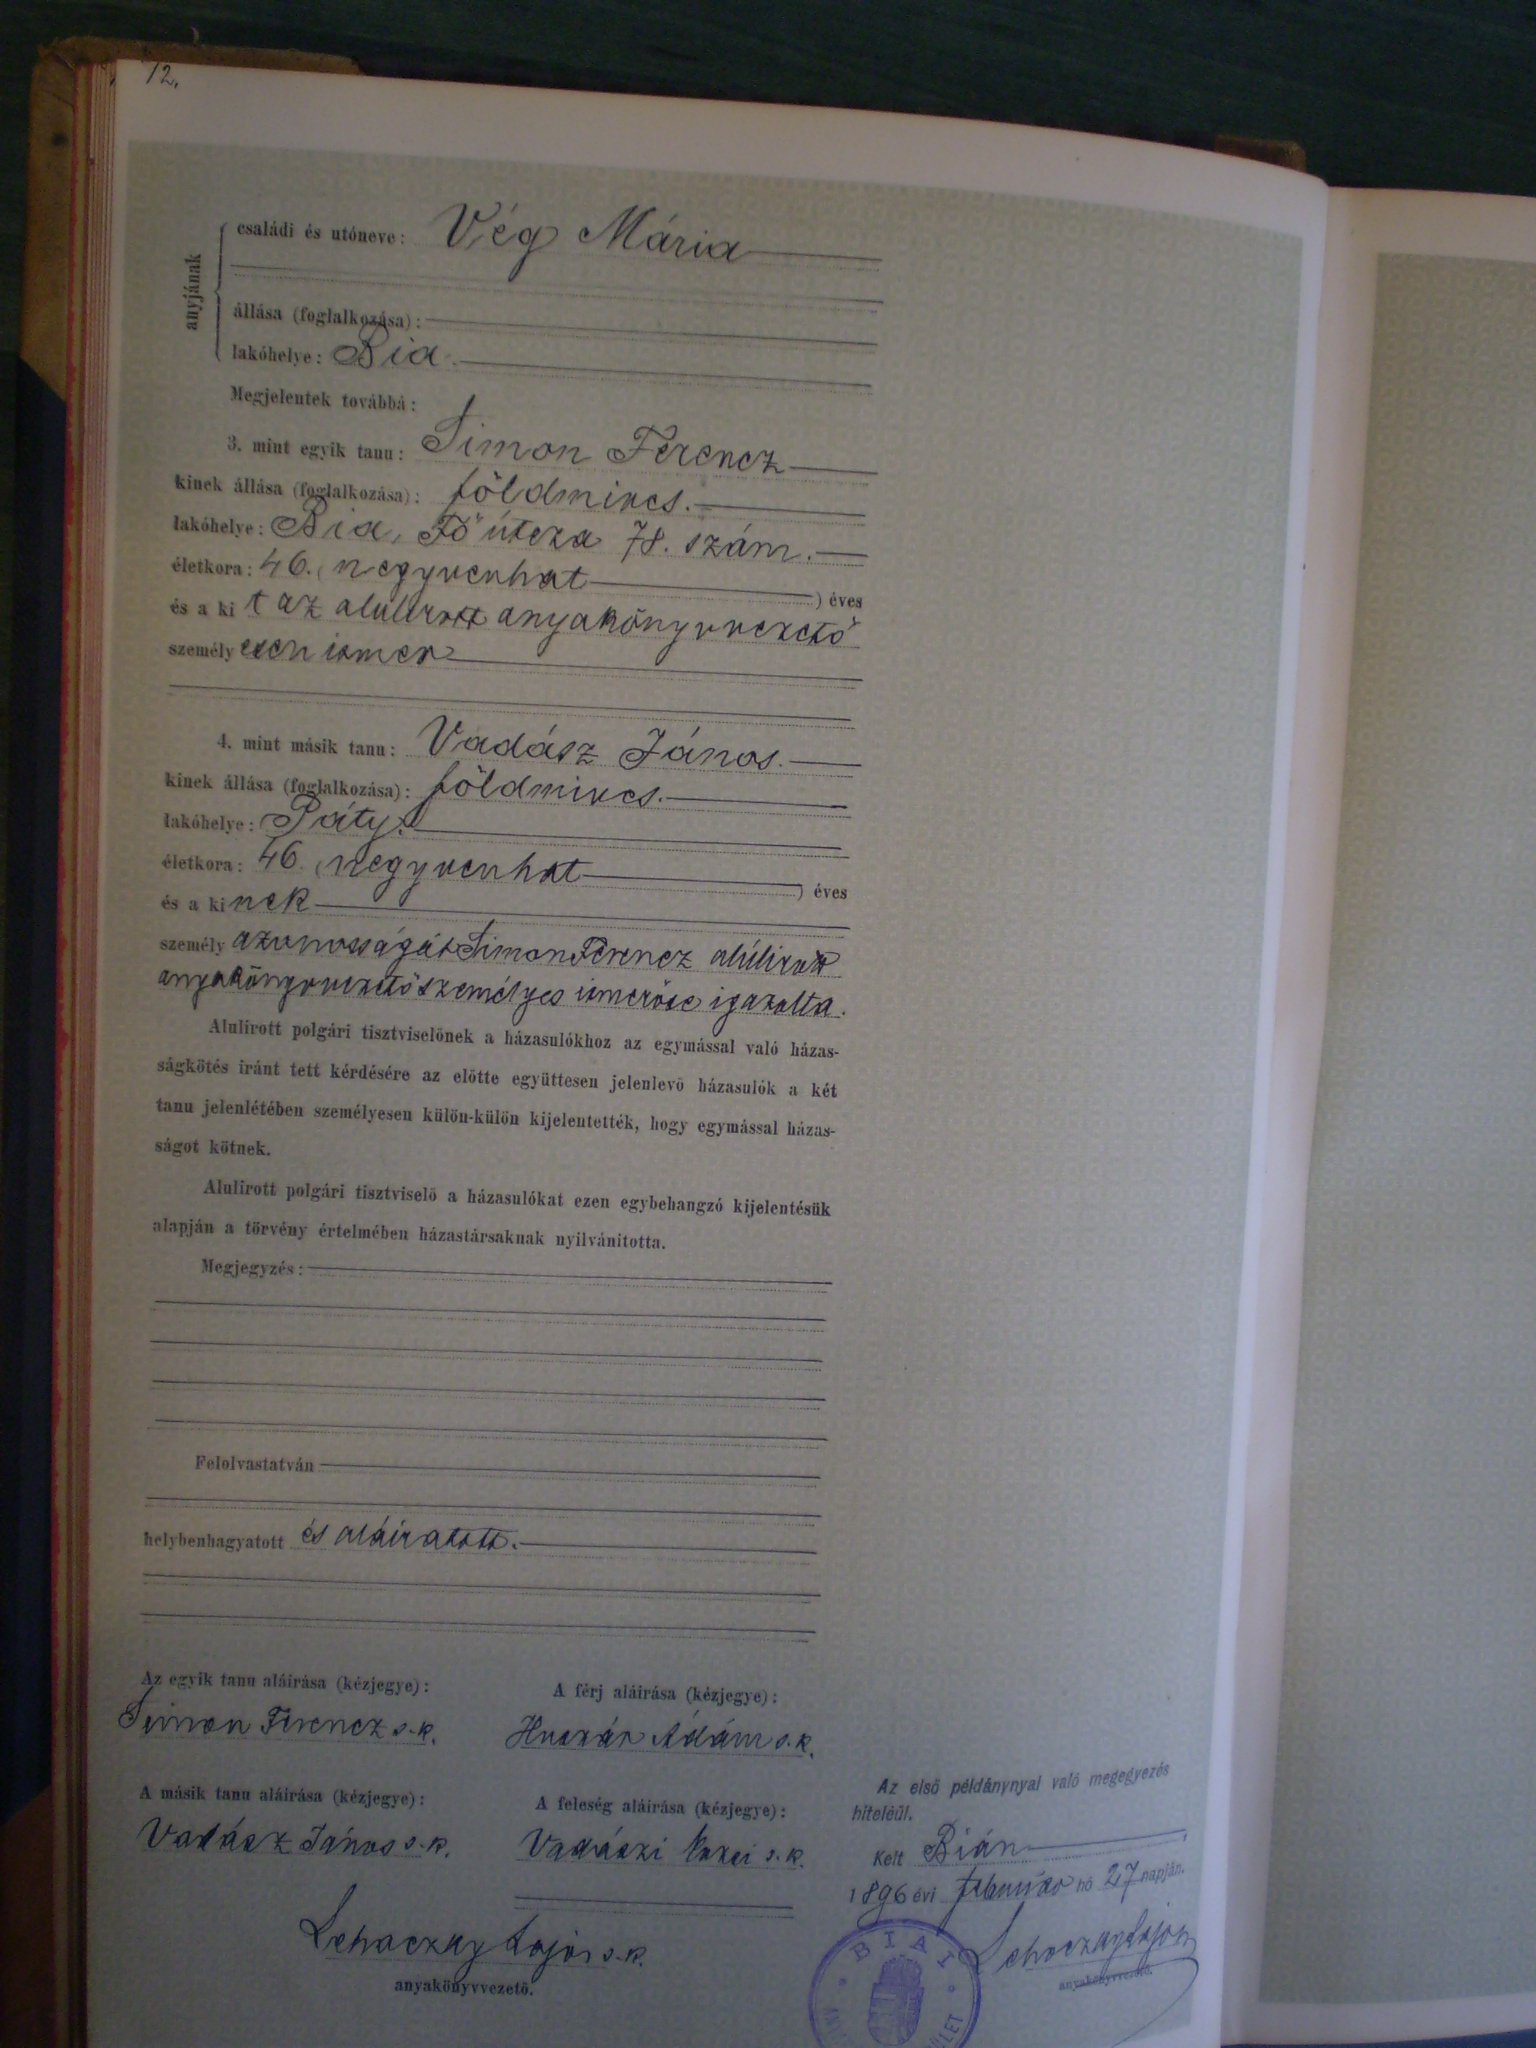 72.
anyjának
családi és utóneve: Vég Mária
állása (foglalkozása):
lakóhelye: Bia.
Megjelentek továbbá:
3. mint egyik tanu: Simon Ferencz
kinek állása (foglalkozása): földmives.
lakóhelye: Bia, Fő útcza 78. szám.
életkora: 46. (negyvenhat ) éves
és a ki t az alulirott anyakönyvvezető
személy esen ismer
4. mint másik tanu: Vadász János.
kinek állása (foglalkozása): földmives.
lakóhelye: Páty.
életkora: 46. (negyvenhat ) éves
és a ki nek
személy azonosságát Simon Ferencz alúlirott
anyakönyvvezető személyes ismerőse igazolta.
Alulírott polgári tisztviselőnek a házasulókhoz az egymással való házas-
ságkötés iránt tett kérdésére az előtte együttesen jelenlevő házasulók a két
tanu jelenlétében személyesen külön-külön kijelentették, hogy egymással házas-
ságot kötnek.
Alulírott polgári tisztviselő a házasulókat ezen egybehangzó kijelentésük
alapján a törvény értelmében házastársaknak nyilvánította.
Megjegyzés:
Felolvastatván
helybenhagyatott és aláiratott.
Az egyik tanu aláirása (kézjegye):
Simon Ferencz s.k.
A férj aláirása (kézjegye):
Huszár Ádám s.k.
A másik tanu aláirása (kézjegye):
Vadász János s.k.
A feleség aláirása (kézjegye):
Vadászi s.k.
Lehoczky Lajos s.k.
anyakönyvvezető.
Az első példánynyal való megegyezés
hiteléül.
Kelt Bián
1896 évi február hó 27 napján.
Lehoczky Lajos
anyakönyvvezető.
BIAI